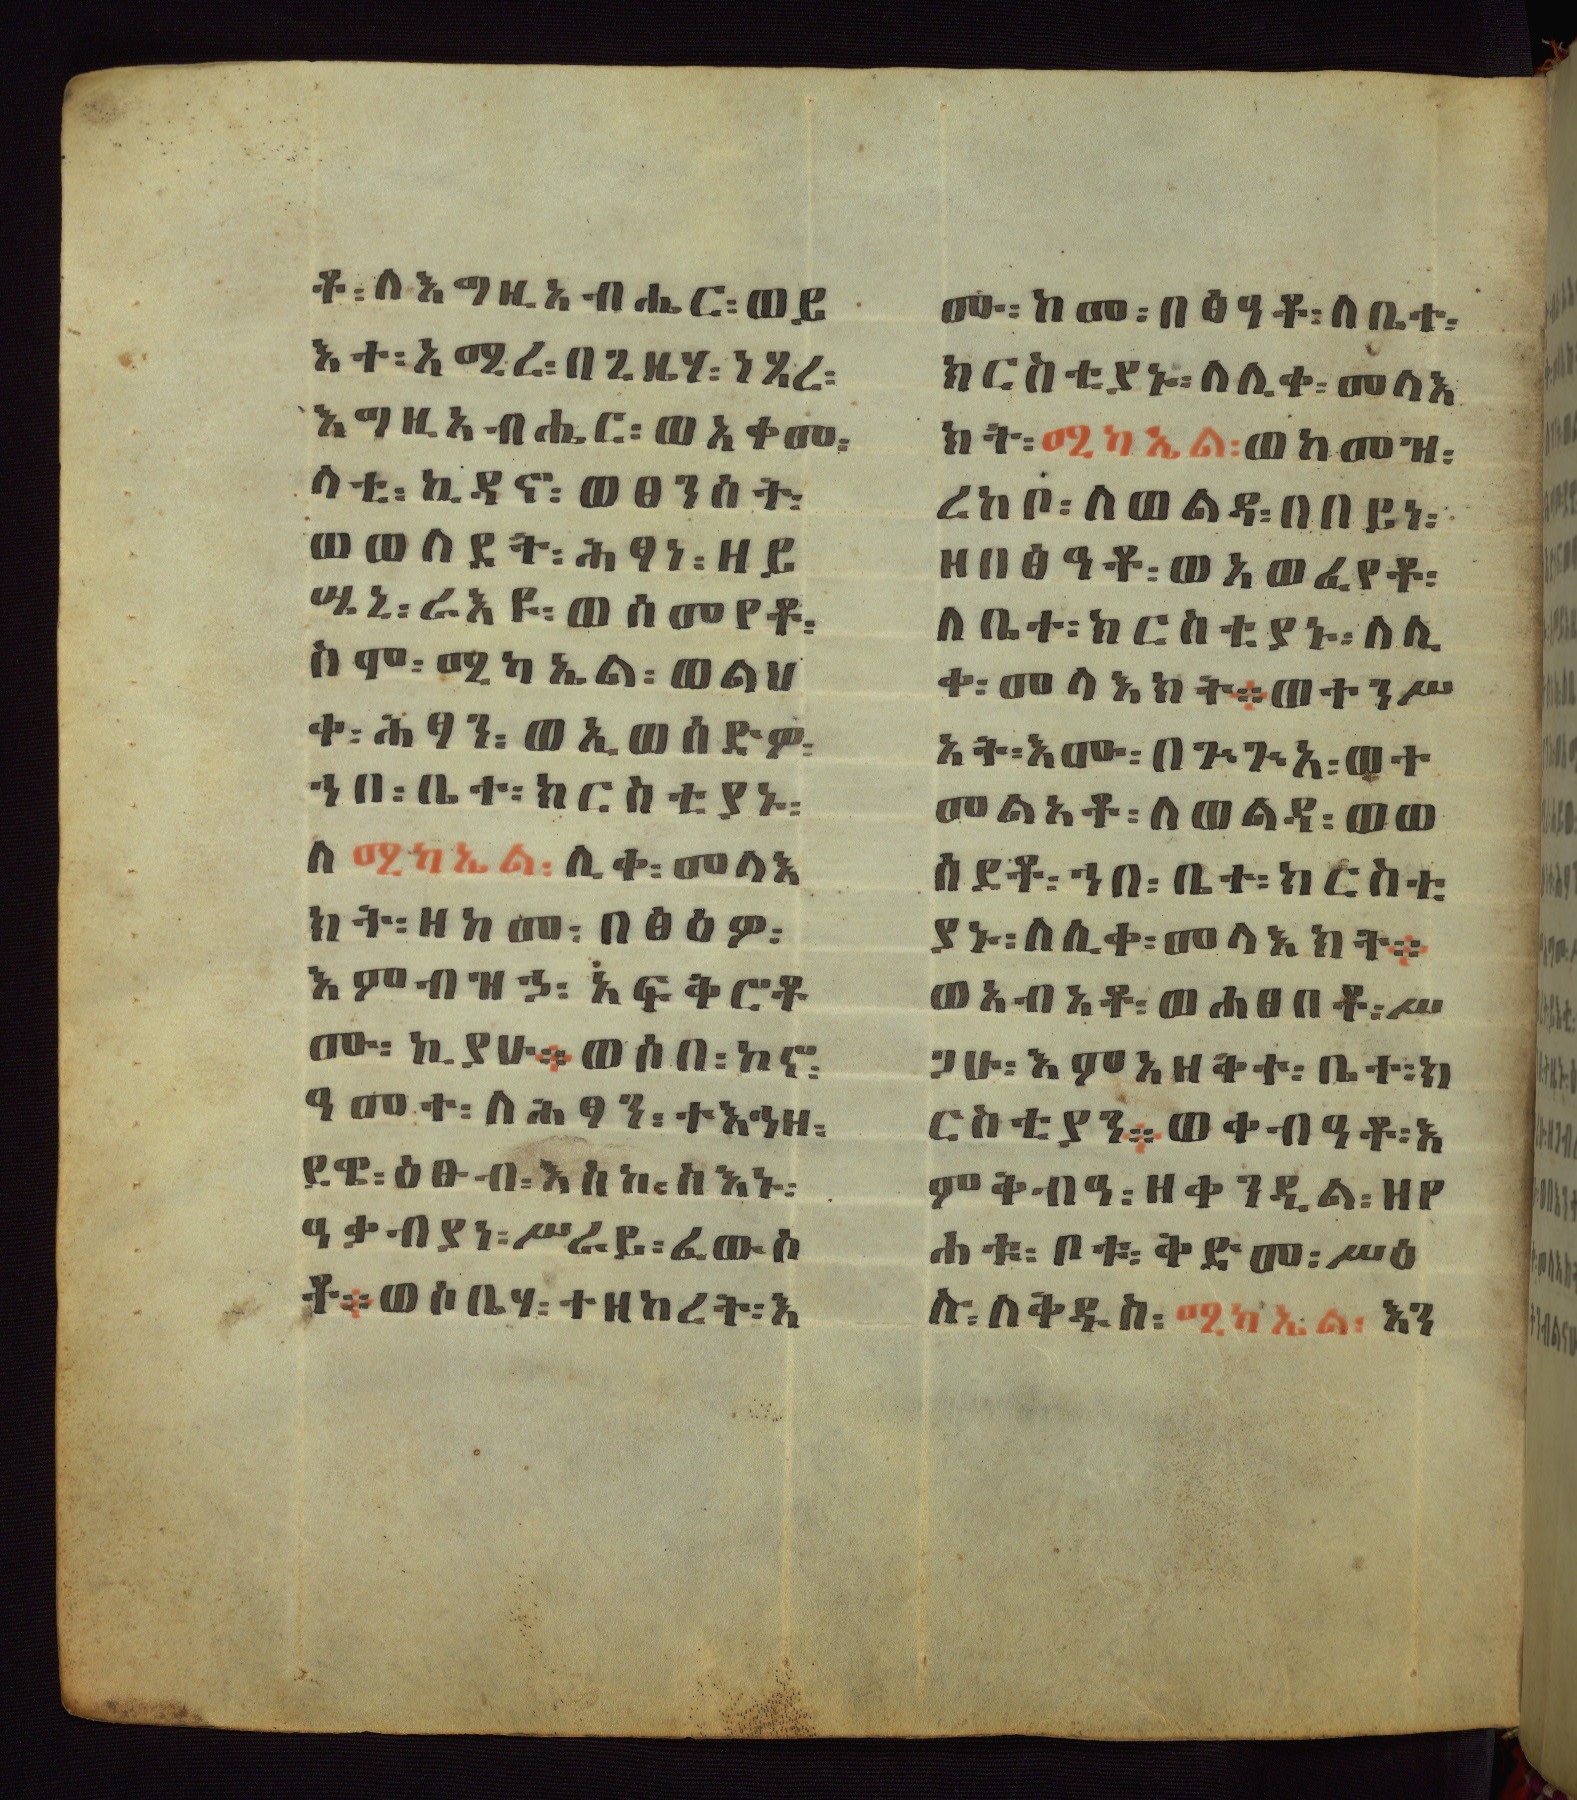 ቶ፡ለእግዚአብሔር፡ወይ
እተ፡አሚረ፡በጊዜሃ፡ነጺረ፡
እግዚአብሔር፡ወአቀመ፡
ላቲ፡ኪዳኖ፡ወፀንሰት፡
ወወለደት፡ሕፃነ፡ዘይ
ሤኒ፡ራእዩ፡ወሰመየቶ፡
ስሞ፡ሚካኤል፡ወልህ
ቀ፡ሕፃን፡ወኢወሰድዎ፡
ኀበ፡ቤተ፡ክርስቲያኑ፡
ለሚካኤል፡ሊቀ፡መላእ
ክት፡ዘከመ፡በፅዕዎ፡
እምብዝኃ፡አፍቅሮቶ
ሙ፡ኪያሁ፨ወሶበ፡ኮኖ፡
ዓመተ፡ለሕፃን፡ተእኅዘ፡
ደዌ፡ዕፁብ፡እስከ፡ስእኑ፡
ዓቃብያነ፡ሥራይ፡ፈውሶ
ቶ፨ወሶቤሃ፡ተዘከረት፡እ
ሙ፡ከመ፡በፅዓቶ፡ለቤተ፡
ክርስቲያኑ፡ለሊቀ፡መላእ
ክት፡ሚካኤል፡ወከመዝ፡
ረከቦ፡ለወልዳ፡በበይነ፡
ዘበፅዓቶ፡ወአወፈየቶ፡
ለቤተ፡ክርስቲያኑ፡ለሊ
ቀ፡መላእክት፨ወተንሥ
አት፡እሙ፡በጉጉአ፡ወተ
መልአቶ፡ለወልዳ፡ወወ
ሰደቶ፡ኀበ፡ቤተ፡ክርስቲ
ያኑ፡ለሊቀ፡መላእክት፨
ወአብአቶ፡ወሐፀበቶ፡ሥ
ጋሁ፡እምአዘቅተ፡ቤተ፡ክ
ርስቲያን፨ወቀብዓቶ፡እ
ምቅብዓ፡ዘቀንዲል፡ዘየ
ሐቱ፡ቦቱ፡ቅድመ፡ሥዕ
ሉ፡ለቅዱስ፡ሚካኤል፡እን